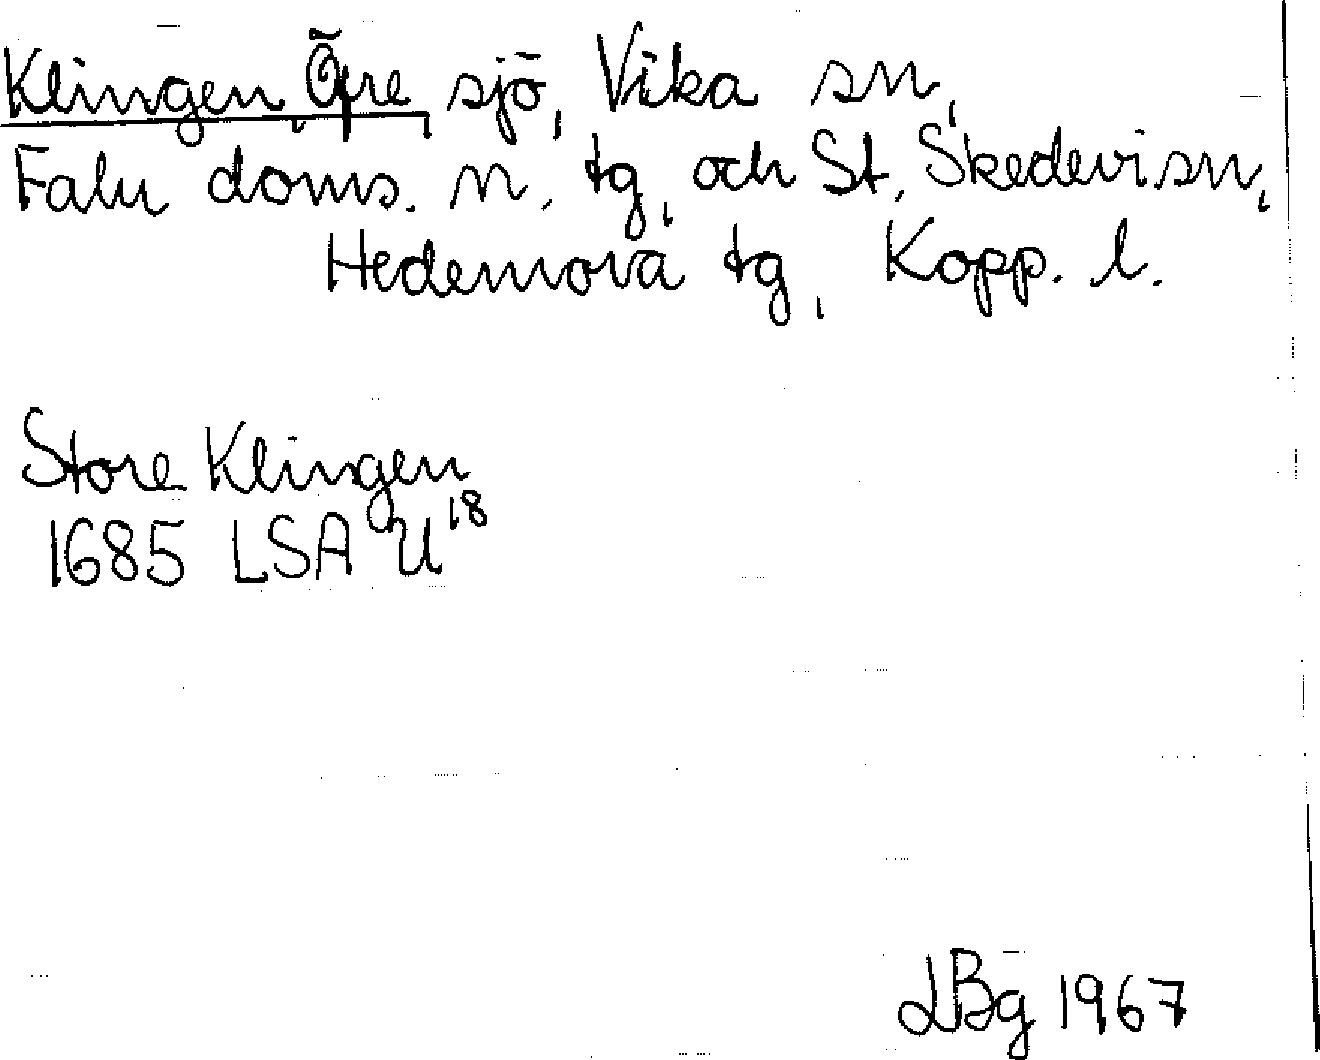 Klingen, Övre, sjö, Vika sn,
Falu doms. n. tg, och St. Skedevi sn,
Hedemora tg, Kopp. l.
Store Klingen
1685 LSA U18
LBg 1967